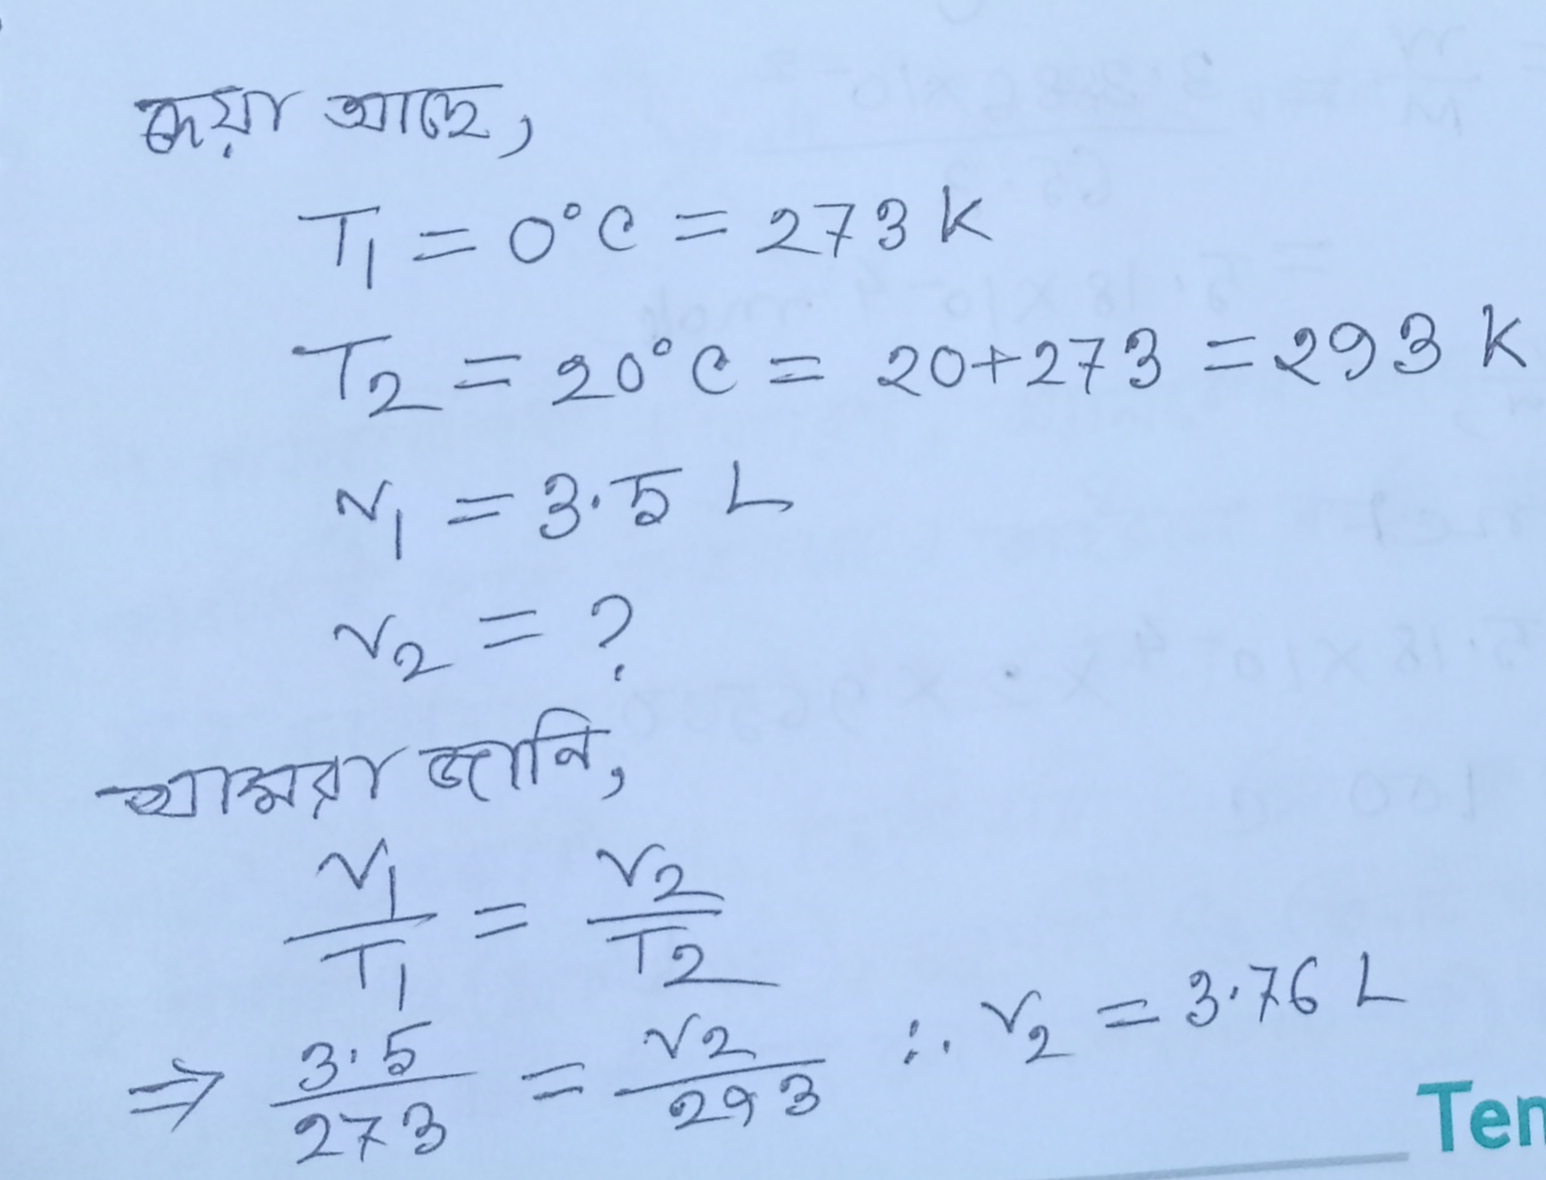 দেয়া আছে,
T₁ = 0°C = 273 K
T₂ = 20°C = 20+273 = 293 K
V₁ = 3.5 L
V₂ = ?
আমরা জানি,
V₁/T₁ = V₂/T₂
⇒ 3.5/273 = V₂/293 ∴ V₂ = 3.76 L
Ten